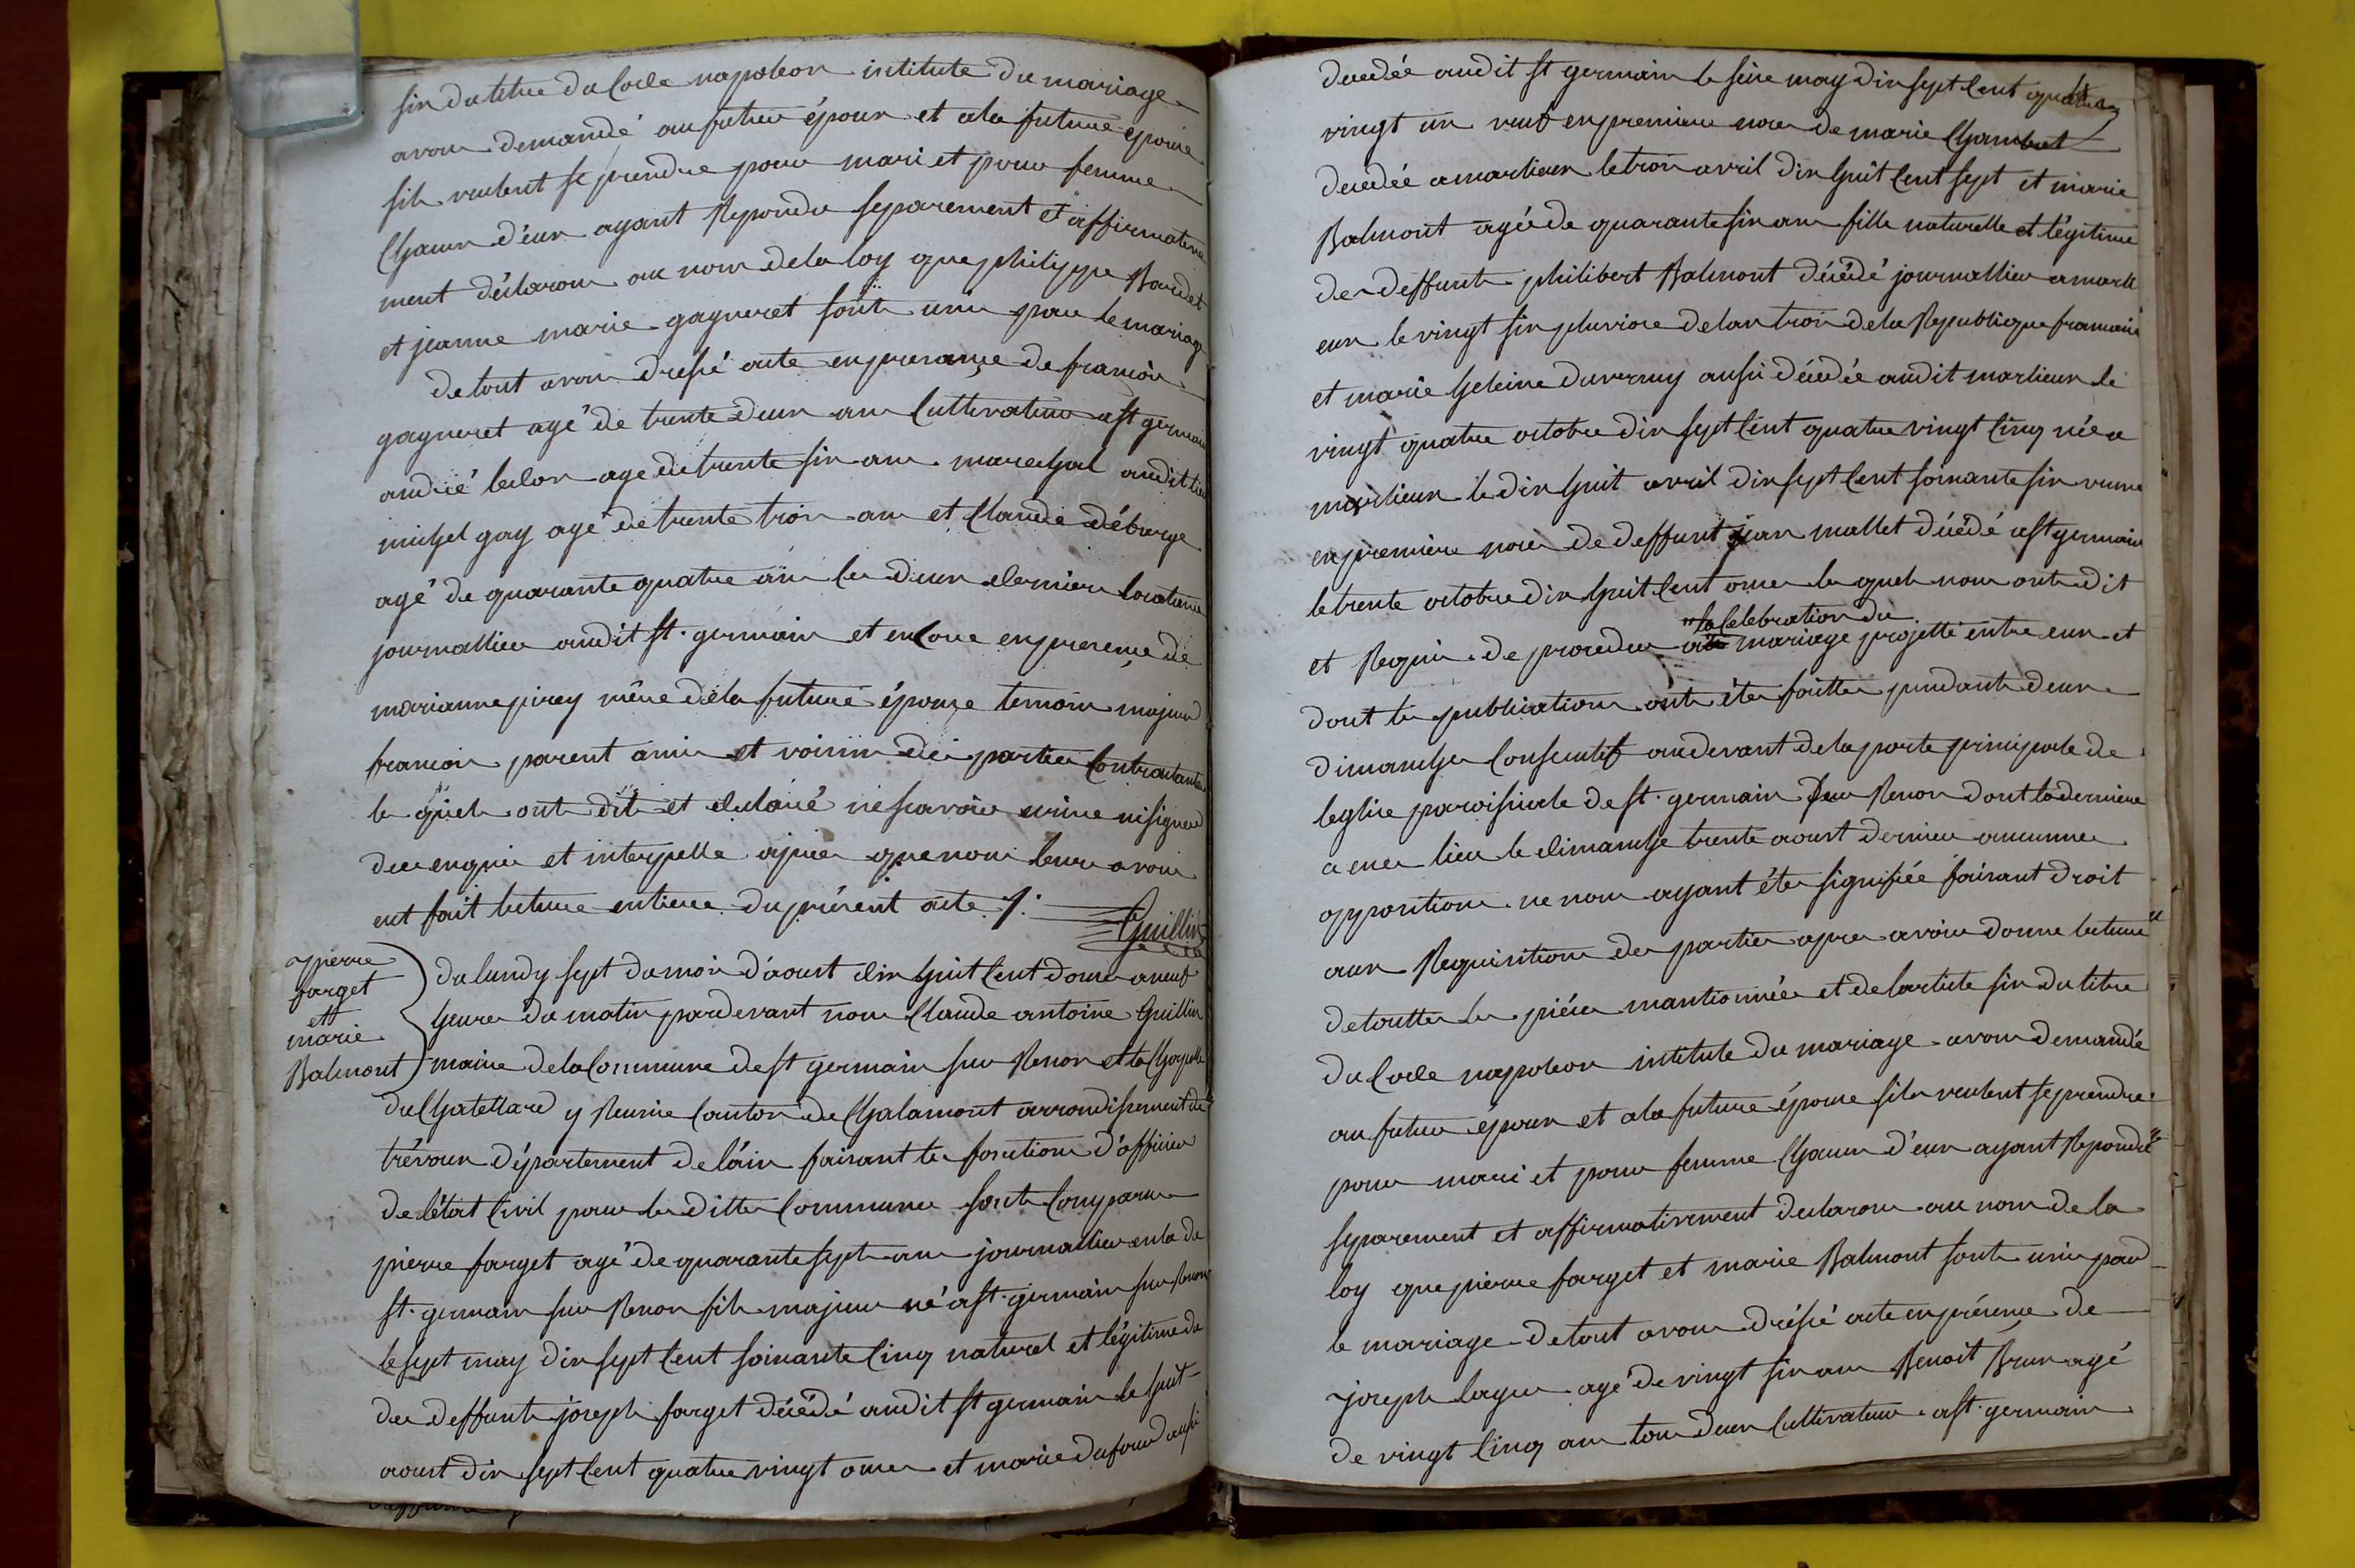 six du titre du Code napoleon intitule du mariage
avons demandé au futur époux et ala future epouse
sils veulent se prendre pour mari et pour femme
Chacun d'eux ayant Repondu separement et affirmative
ment déclarons au nom de la loy que philippe Baudet
et jeanne marie gagneret sont unis par le mariage
de tout avons dressé acte en presance de francois
gagneret agé de trente deux ans Cultivateur a st germain
andré leclon age de trente six ans marechal audit lieu
michel gay agé de trente trois ans et Claude débarge
agé de quarante quatre ans les deux derniers locataires
journallier audit st. germain et encore en presence de
marianne pirey mère de la future épouse temoins majeurs
francois parent amis et voisins des parties Contractantes
les quels ont dit et declaré ne scavoir ecrire ni signer
de ce enquis et interpellé apres que nous leurs avons
eut fait lecture entiere du présent acte ./.
Guillin
pierre
farget
et
marie
Balmont
du lundy sept du mois d'aoust dix huit Cent douze a neuf
heures du matin pardevant nous Claude antoine Guillin
maire de la Commune de st germain sur Renon et la Chapelle
du Chatellard y Reunie Canton de Chalamont arrondissement de
trévoux département de l'ain faisant les fonctions d'officier
de l'état Civil pour les dittes Communes sont Comparus
pierre farget agé de quarante sept ans journallier en la de
st. germain sur Renon fils majeur né a st. germain sur Renon
le sept may dix sept Cent soixante Cinq naturel et légitime de
des deffunts joseph farget décédé audit st germain le huit
aoust dix sept Cent quatre vingt onze et marie dufour aussi
decedée audit st germain le seize may dix sept Cent quatre
vingt un veuf en premiere noce de marie Chambret
decedée a marlieux le trois avril dix huit Cent sept et marie
Balmont agée de quarante six ans fille naturelle et légitime
des deffunts philibert Balmont décédé journallier a marli
eux le vingt six pluviose de l'an trois de la Republique francaise
et marie heleine duvernay aussi décédée audit marlieux le
vingt quatre octobre dix sept Cent quatre vingt Cinq née a
marlieux le dix huit avril dix sept Cent soixante six veuve
en première noces de deffunt jean mallet décédé a st germain
le trente octobre dix huit Cent onze les quels nous ont dit
"la Celebration du
et Requis de proceder au mariage projetté entre eux et
dont les publications ont étés faittes pendants deux
dimanches Consecutifs au devant de la porte principale de
leglise paroissiale de st. germain sur Renon dont la derniere
a eue lieu le dimanche trente aoust dernier aucunne
opposition ne nous ayant étés signifiée faisant droit
aux Requisitions des parties apres avoir donne lecture
de touttes les pièces mantionnées et de larticle six du titre
du Code napoleon intitule du mariage avons demandé
au futur époux et ala future épouse sils veulent se prendre
pour mari et pour femme Chacun d'eux ayant Repondu
separement et affirmativement declarons au nom de la
loy que pierre farget et marie Balmont sont unis par
le mariage de tout avons dréssé acte en présence de
joseph layer agé de vingt six ans Benoit Brun agé
de vingt Cinq ans tous deux Cultivateurs a st. germain